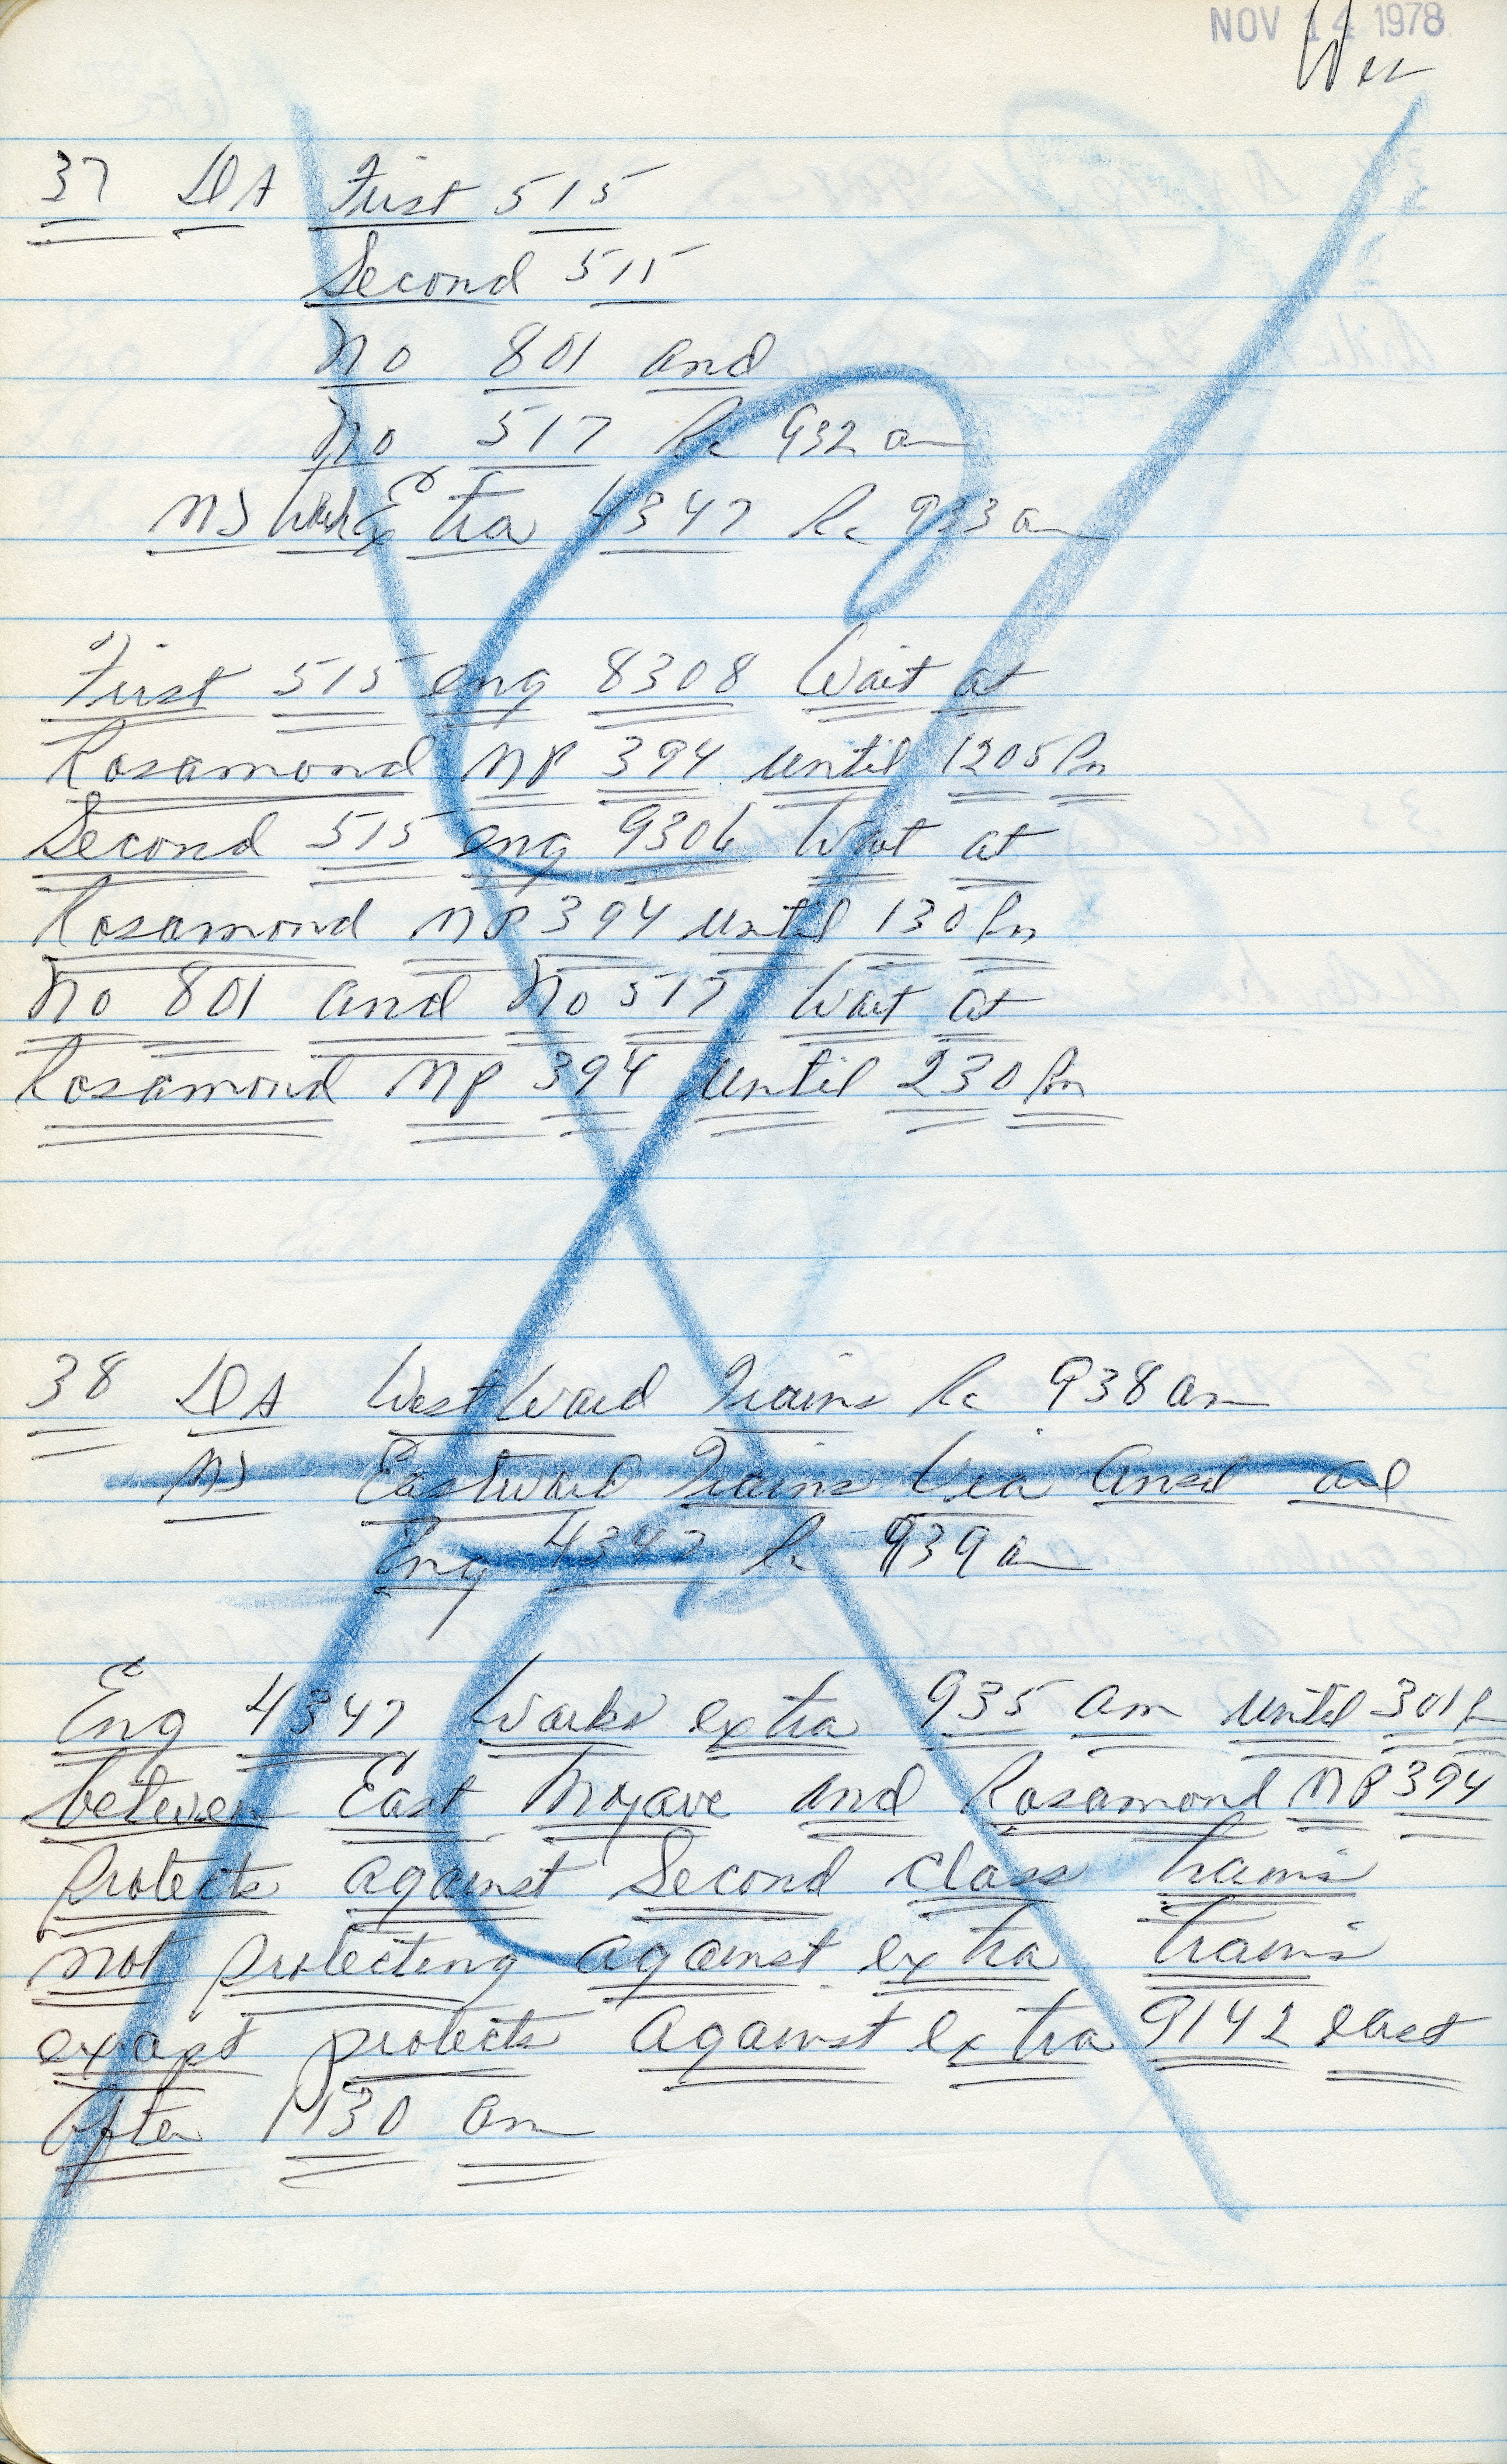 NOV 14 1978
37 DA First 515
Second 515
No 801 and
No 517 Rc 932 am
MJ Work Extra 4347 Rc 933 am
First 515 eng 8308 Wait at
Rosamond MP 394 until 1205 Pm
Second 515 eng 9306 Wait at
Rosamond MP 394 until 130 Pm
No 801 and No 517 Wait at
Rosamond MP 394 until 230 Pm
38 DA WestWard Trains Rc 938 am
MJ Eastward Trains Via Ansel and
Eng 4347 Rc 939 am
Eng 4347 Works extra 935 am until 301 P
between East Mojave and Rosamond MP 394
Protects against Second class trains
not protecting against extra trains
except protects against extra 9142 east
after 1130 am